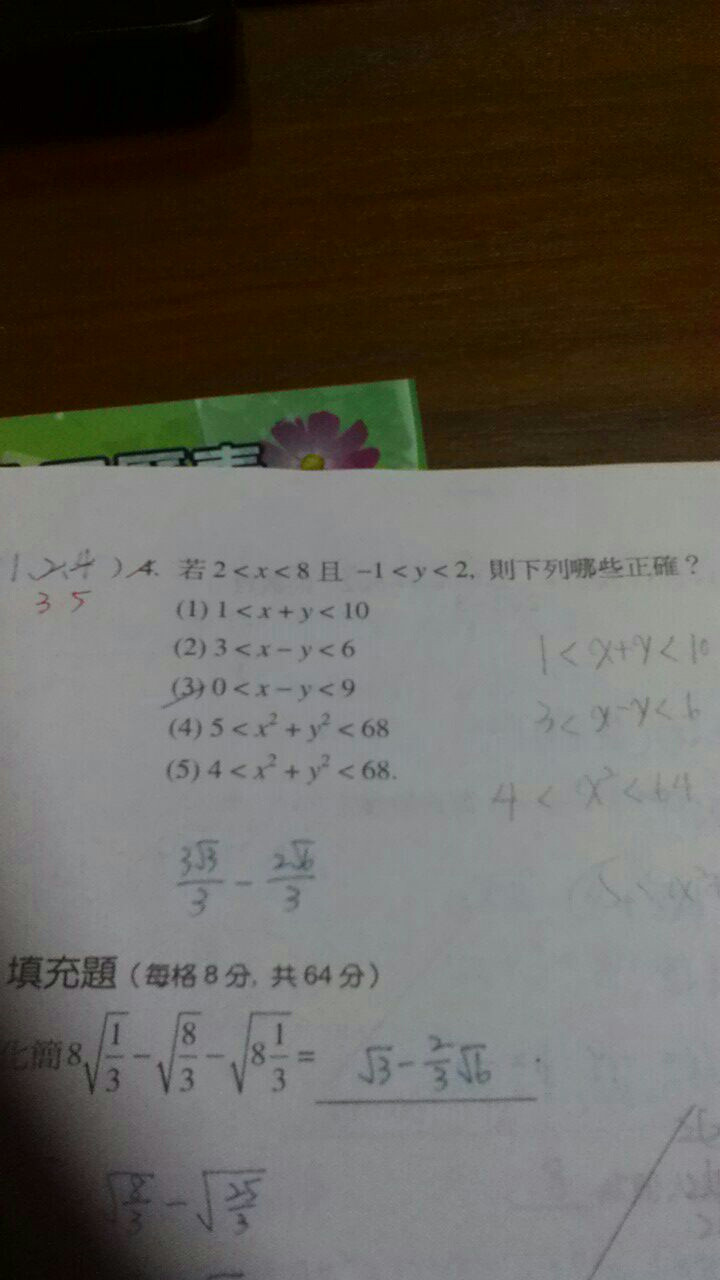 1,2,4 ) 4. 若 2 < x < 8 且 -1 < y < 2, 則下列哪些正確？
3 5
(1) 1 < x + y < 10
(2) 3 < x - y < 6
(3) 0 < x - y < 9
(4) 5 < x² + y² < 68
(5) 4 < x² + y² < 68.
1 < x+y < 10
3 < x-y < 6
4 < x² < 64
3√3/3 - 2√6/3
填充題（每格8分, 共64分）
化簡 8√(1/3) - √(8/3) - √(8 1/3) = √3 - 2/3 √6 .
√(8/3) - √(25/3)